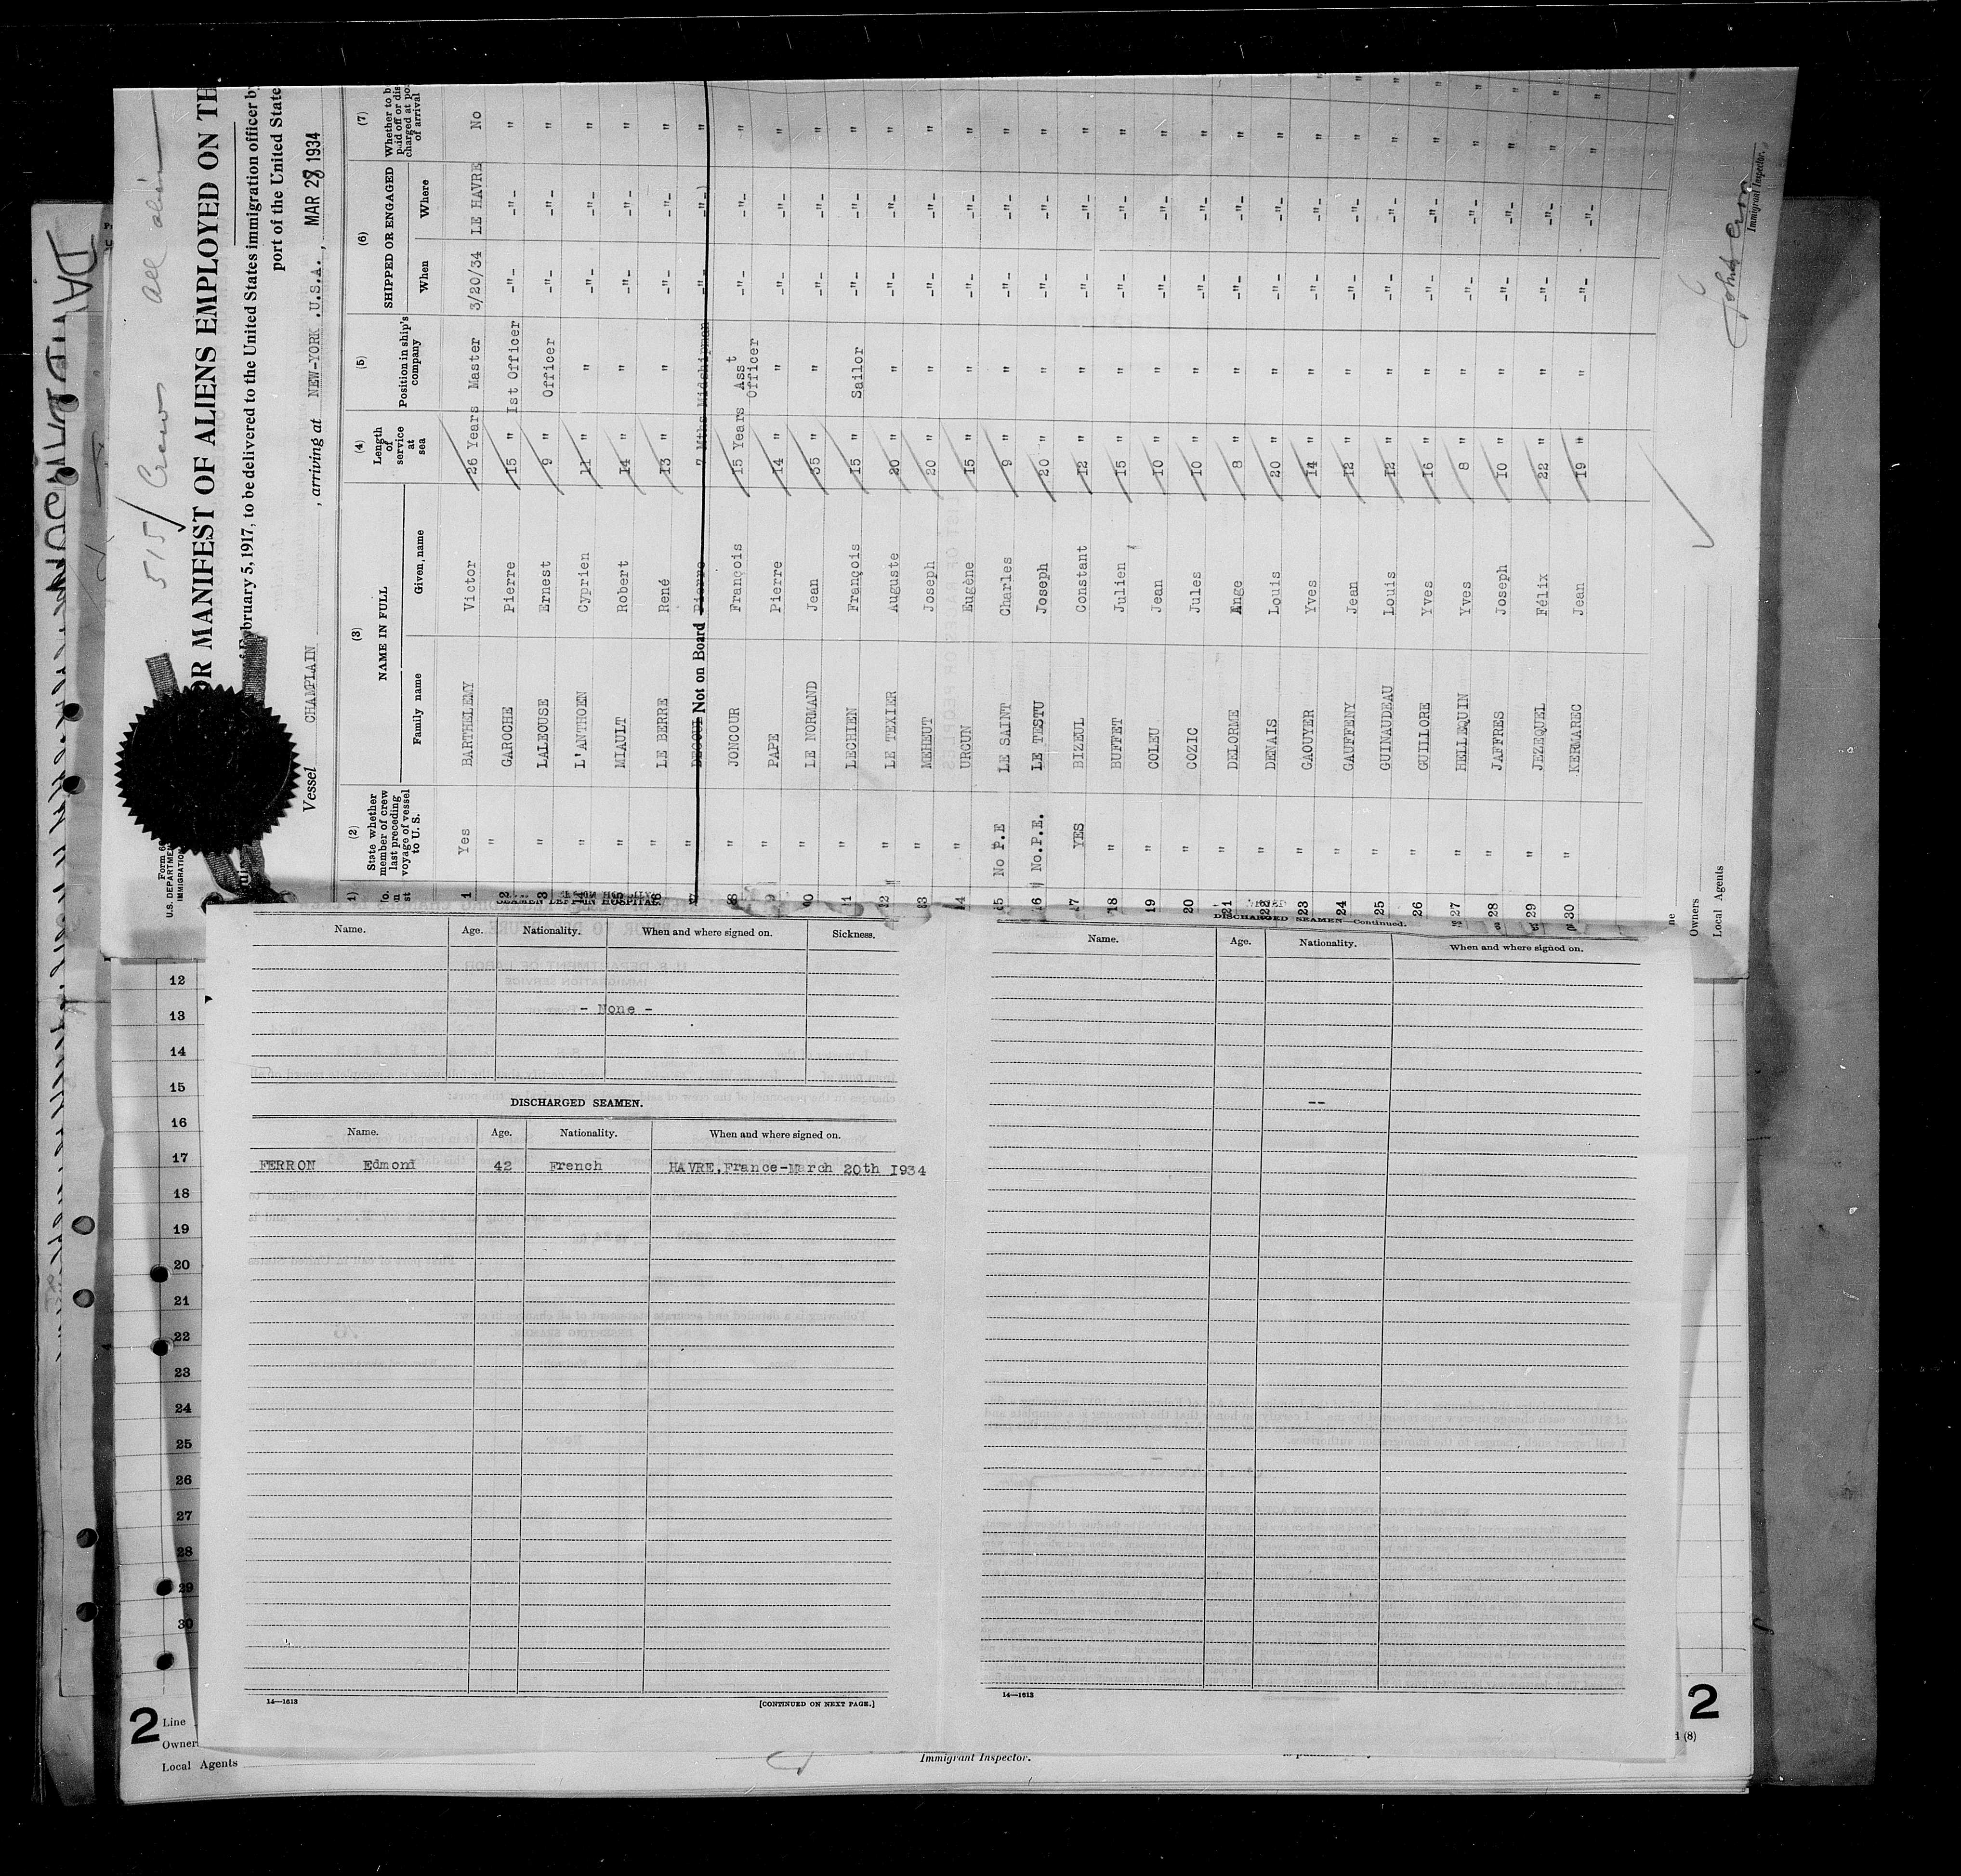 515/ Crew All alien
OR MANIFEST OF ALIENS EMPLOYED ON TH
of February 5, 1917, to be delivered to the United States immigration officer by
port of the United State
Vessel CHAMPLAIN , arriving at NEW-YORK .U.S.A. , MAR 28 1934
Form 6
U.S. DEPARTMENT
IMMIGRATION
(2) (3) (4) (5) (6) (7)
State whether member of crew last preceding voyage of vessel to U. S.
NAME IN FULL
Family name Given name
Length of service at sea
Position in ship's company
SHIPPED OR ENGAGED
When Where
Whether to b paid off or dis charged at po of arrival
1 Yes BARTHELEMY Victor 26 Years Master 3/20/34 LE HAVRE No
2 " GAROCHE Pierre 15 " 1st Officer -"- -"- "
3 " LALEOUSE Ernest 9 " Officer -"- -"- "
4 " L'ANTHOEN Cyprien 11 " " -"- -"- "
5 " MIAULT Robert 14 " " -"- -"- "
6 " LE BERRE René 13 " " -"- -"- "
7 " Not on Board Pierre 7 Mths Midshipman -"- -"- "
8 " JONCOUR François 15 Years Ass't Officer -"- -"- "
9 " PAPE Pierre 14 " " -"- -"- "
10 " LE NORMAND Jean 35 " " -"- -"- "
11 " LECHIEN François 15 " Sailor -"- -"- "
12 " LE TEXIER Auguste 20 " " -"- -"- "
13 " MEHEUT Joseph 20 " " -"- -"- "
14 " URCUN Eugène 15 " " -"- -"- "
15 No P.E LE SAINT Charles 9 " " -"- -"- "
16 No.P.E. LE TESTU Joseph 20 " " -"- -"- "
17 YES BIZEUL Constant 12 " " -"- -"- "
18 " BUFFET Julien 15 " " -"- -"- "
19 " COLEU Jean 10 " " -"- -"- "
20 " COZIC Jules 10 " " -"- -"- "
21 " DELORME Ange 8 " " -"- -"- "
22 " DENAIS Louis 20 " " -"- -"- "
23 " GAOUYER Yves 14 " " -"- -"- "
24 " GAUFFENY Jean 12 " " -"- -"- "
25 " GUINAUDEAU Louis 12 " " -"- -"- "
26 " GUILLORE Yves 16 " " -"- -"- "
27 " HELLEQUIN Yves 8 " " -"- -"- "
28 " JAFFRES Joseph 10 " " -"- -"- "
29 " JEZEQUEL Félix 22 " " -"- -"- "
30 " KERMAREC Jean 19 " " -"- -"- "
Owners
Local Agents
Immigrant Inspector.
SEAMEN LEFT IN HOSPITAL.
Name. Age. Nationality. When and where signed on. Sickness.
- None -
DISCHARGED SEAMEN.
Name. Age. Nationality. When and where signed on.
FERRON Edmond 42 French HAVRE.France-March 20th 1934
14—1613 [CONTINUED ON NEXT PAGE.]
DISCHARGED SEAMEN—Continued.
Name. Age. Nationality. When and where signed on.
--
14—1613
12
13
14
15
16
17
18
19
20
21
22
23
24
25
26
27
28
29
30
2
Line
Owner
Local Agents
Immigrant Inspector.
2
(8)